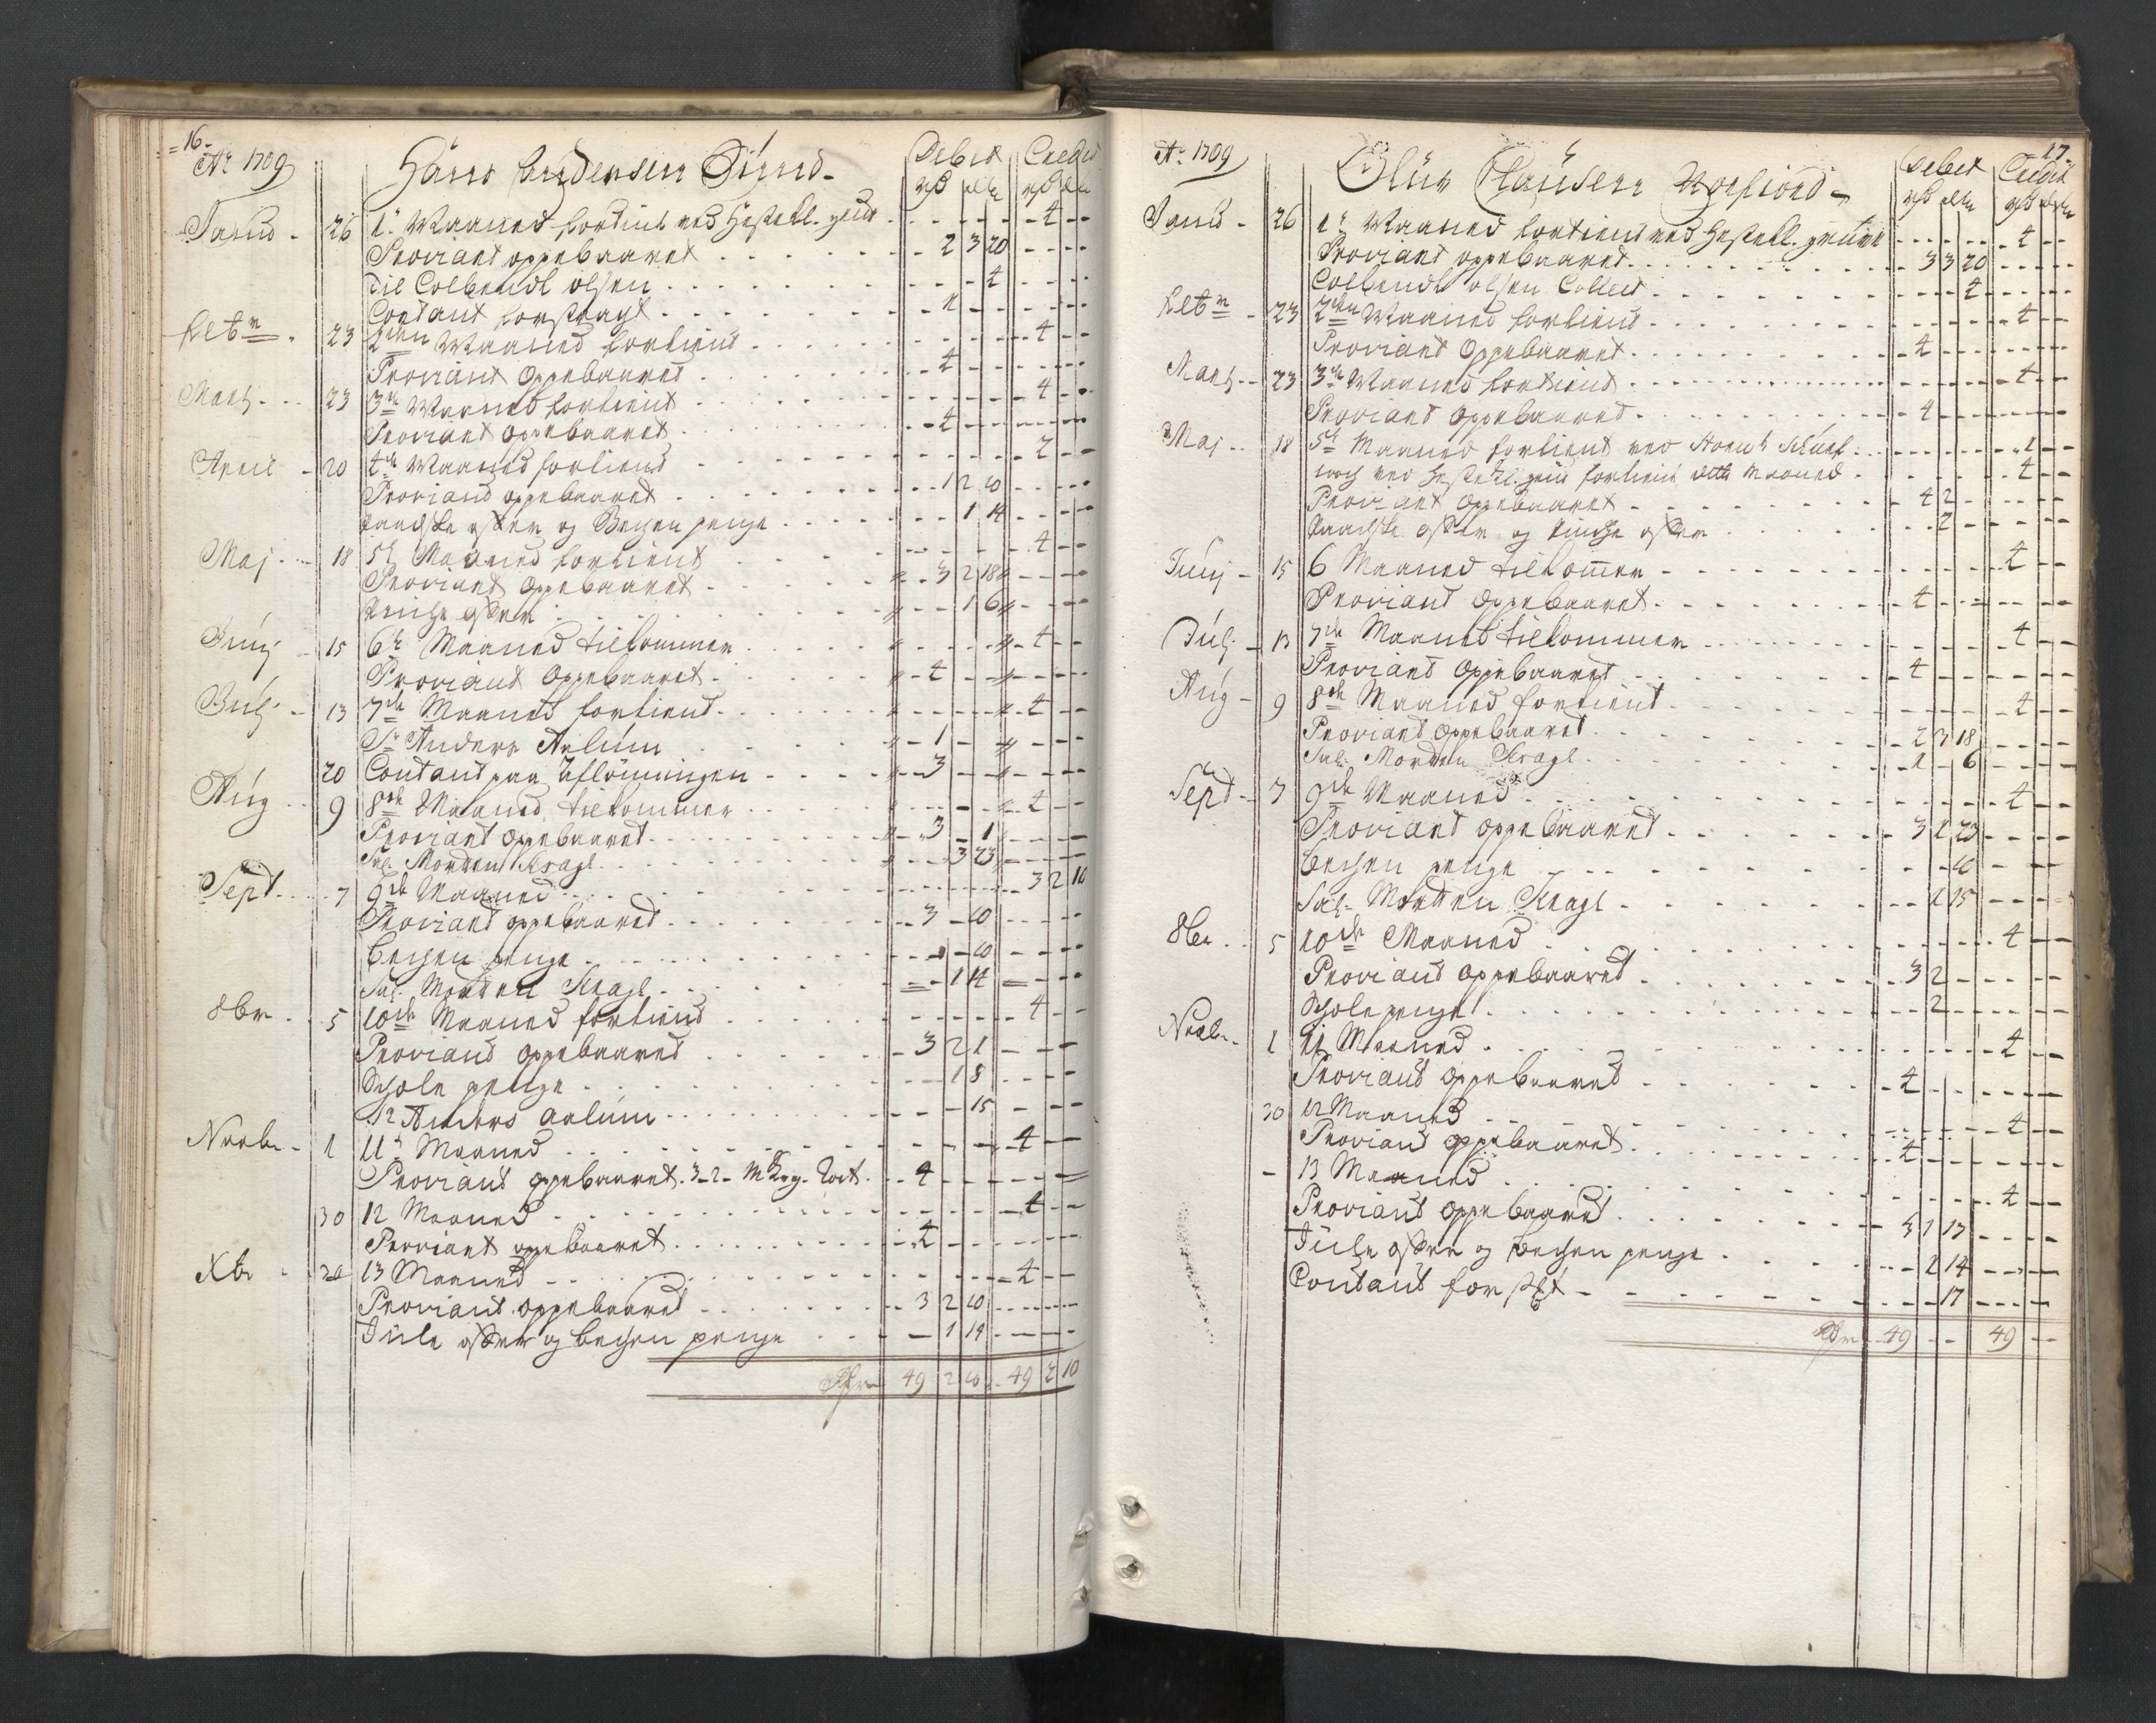 16.
Ao 1709
Hans Andersen Sund
Debet Credit
Janu 26 1. Maaned fortient ved 4
Proviant oppebaaret 2 3 20
Til Colbend olsen 4
Contant forstragt 1
Febr 23 2den Maaned fortient 4
Proviant Oppebaaret 4
Marty 23 3de Maaned fortient 4
Proviant Oppebaaret 4
April 20 4de Maaned fortient 2
Proviant oppebaaret 1 2 10
offer og Bechen penge 1 14
Maj 18 5te Maaned fortient 4
Proviant Oppebaaret 3 2 18
offer 1 6
Junj 15 6te Maaned tilkommer 4
Proviant Oppebaaret 4
Julj 13 7de Maaned fortient 4
Sr Anders Aslum 1
20 Contant paa Aflönningen 3
Aug 9 8de Maaned tilkommer 4
Proviant Oppebaaret 3 1
Sal. Morten Kragl 3 23
Sept 7 9de Maaned 3 2 10
Proviant oppebaaret 3 10
Bechen penge 10
Sal. Morten Kragl 1 14
8br 5 10de Maaned fortient 4
Proviant oppebaaret 3 2 1
Schole penge 1 8
Sr Anders Aslum 15
Novbr 1 11. Maaned 4
Proviant oppebaaret 3-2- 4
30 12 Maaned 4
Proviant oppebaaret 4
Xbr 30 13 Maaned 4
Proviant oppebaaret 3 2 10
Jule offer og bechen penge 1 14
49 2 10 49 2 10
17.
Ao 1709
Oluv Clausen
Debet Credit
Janu 26 1. Maaned fortient ved 4
Proviant oppebaaret 3 3 20
Colbend olsen 4
Febr 23 2den Maaned fortient 4
Proviant Oppebaaret 4
Marty 23 3de Maaned fortient 4
Proviant oppebaaret 4
Maj 18 5te Maaned fortient ved
noch ved fortient dette Maaned 4
Proviant Oppebaaret 4 2
offer og offer 2
Junj 15 6 Maaned tilkommer 4
Proviant Oppebaaret 4
Julj 13 7de Maaned tilkommer 4
Proviant Oppebaaret 4
Aug 9 8de Maaned fortient 4
Proviant Oppebaaret 2 3 18
Sal. Morten Kragl 1 6
Sept 7 9de Maaned 4
Proviant oppebaaret 3 1 23
bechen penge 10
Sal. Morten Kragl 1 15
8br 5 10de Maaned 4
Proviant oppebaaret 3 2
Schole penge 2
Novbr 1 11 Maaned 4
Proviant oppebaaret 4
30 12 Maaned 4
Proviant oppebaaret 4
13 Maaned 4
Proviant oppebaaret 3 1 13
Jule offer og bechen penge 2 14
Contant 17
49 49